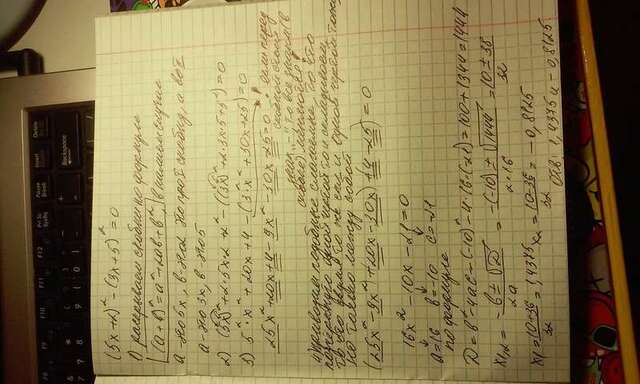 F8 F9 F10 F11 F12 Prt Sc SysRq Pause Break Insert Delete
Backspace
(5x+2)² - (3x+5)² = 0
1) раскрываем скобки по формуле
(a+b)² = a²+2ab+b², в нашем случае
a - это 5x, b - это 2 по 1 скобке, а во 2
a - это 3x, b - это 5
2) ((5x)²+2·5x·2+2² - ((3x)²+2·3x·5+5²) = 0
3) 5²·x²+20x+4 - (3²·x²+30x+25) = 0
25x²+20x+4-9x²-30x-25=0 ! если перед
скобкой стоит
знак "-", то все знаки (в
скобке) меняются!
4) приводим подобные слагаемые, то что
подчеркнуто одной чертой то и складываем,
то что двумя то же самое и одной чертой тоже,
но только между собой
(25x²-9x²)+(20x-30x)+(4-25) = 0
16x² - 10x - 21 = 0
a=16 b=-10 c=-21
по формуле
D = b²-4ac = (-10)²-4·16·(-21) = 100+1344 = 1444
x1,2 = -b±√D / 2a = -(-10)±√1444 / 2·16 = 10±38 / 32
x1 = 10+36 / 32 = 1,4375 x2 = 10-36 / 32 = -0,8125
Отв: 1,4375 и -0,8125